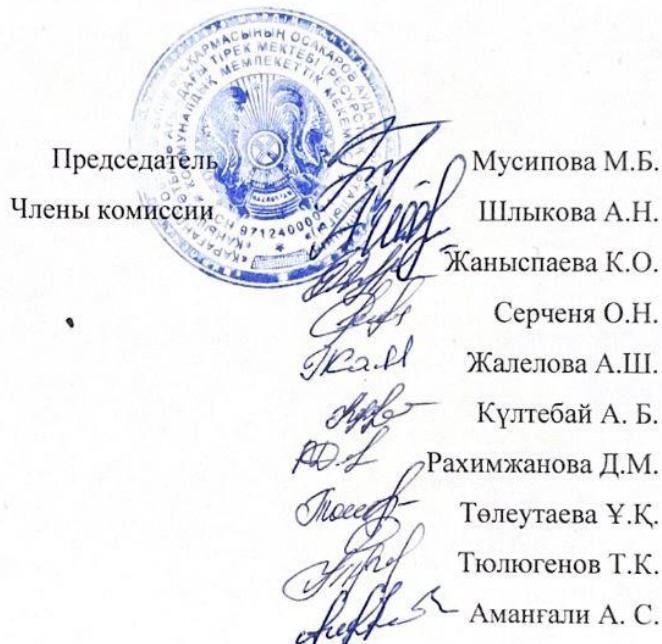 Председатель Мусипова М.Б.
Члены комиссии Шлыкова А.Н.
Жаныспаева К.О.
Серченя О.Н.
Жалелова А.Ш.
Күлтебай А. Б.
Рахимжанова Д.М.
Төлеутаева Ұ.Қ.
Тюлюгенов Т.К.
Аманғали А. С.